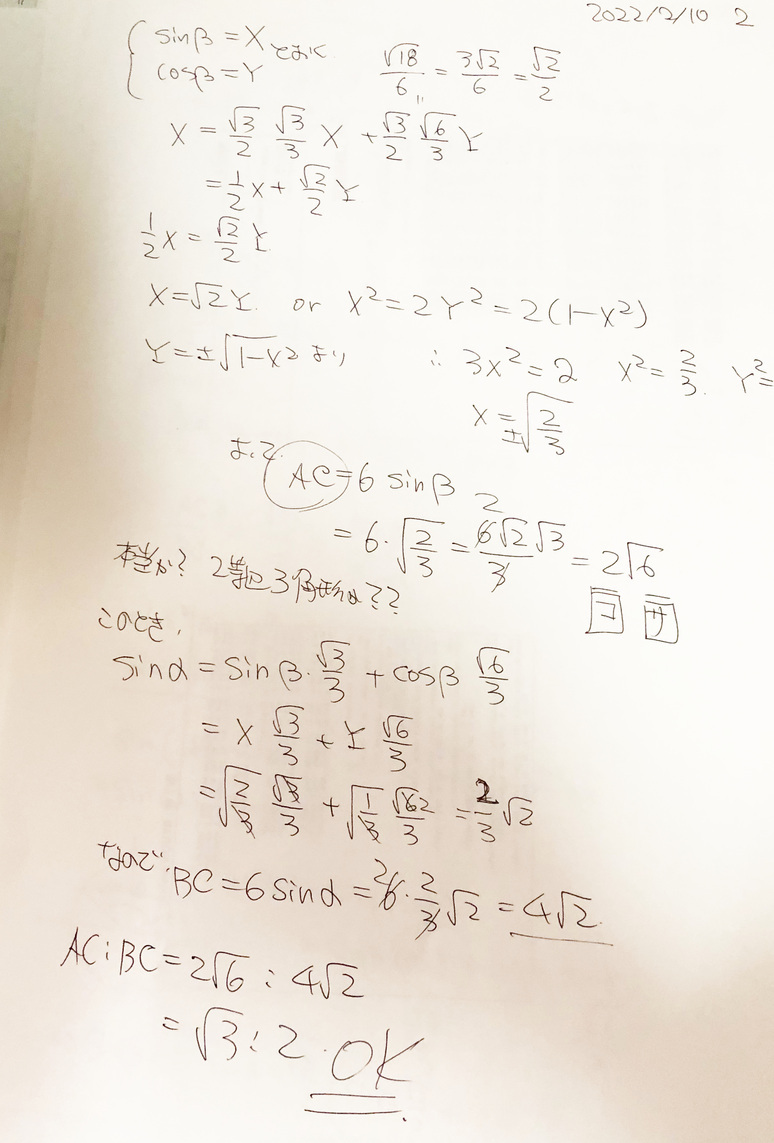 2022/2/10 2
{ sinβ = X とおく
cosβ = Y
√18/6 = 3√2/6 = √2/2
X = √3/2 √3/3 X + √3/2 √6/3 Y
= 1/2 X + √2/2 Y
1/2 X = √2/2 Y
X = √2 Y. or X² = 2Y² = 2(1-X²)
Y = ±√(1-X²) より ∴ 3X² = 2 X² = 2/3. Y² =
X = ±√(2/3)
よって. AC = 6 sinβ
= 6・√(2/3) = 6√2√3/3 2 = 2√6
本当か? 2等辺3角形は??
コ サ
このとき,
sinα = sinβ・√3/3 + cosβ √6/3
= X √3/3 + Y √6/3
= √(2/3) √3/3 + √(1/3) √6 2/3 = 2/3 √2
なので, BC = 6 sinα = 2 6・2/3 √2 = 4√2.
AC : BC = 2√6 : 4√2
= √3 : 2. OK.